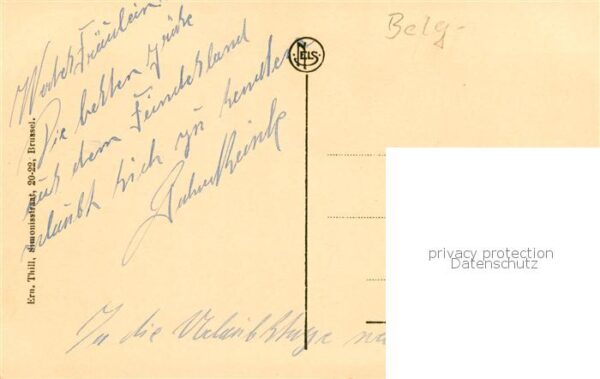 Wertes Fräulein!
Die besten Grüße
aus dem Feindesland
erlaubt sich zu senden
Belg-
NELS
Ern. Thill, Simonisstraat, 20-22, Brussel.
privacy protection
Datenschutz
In die